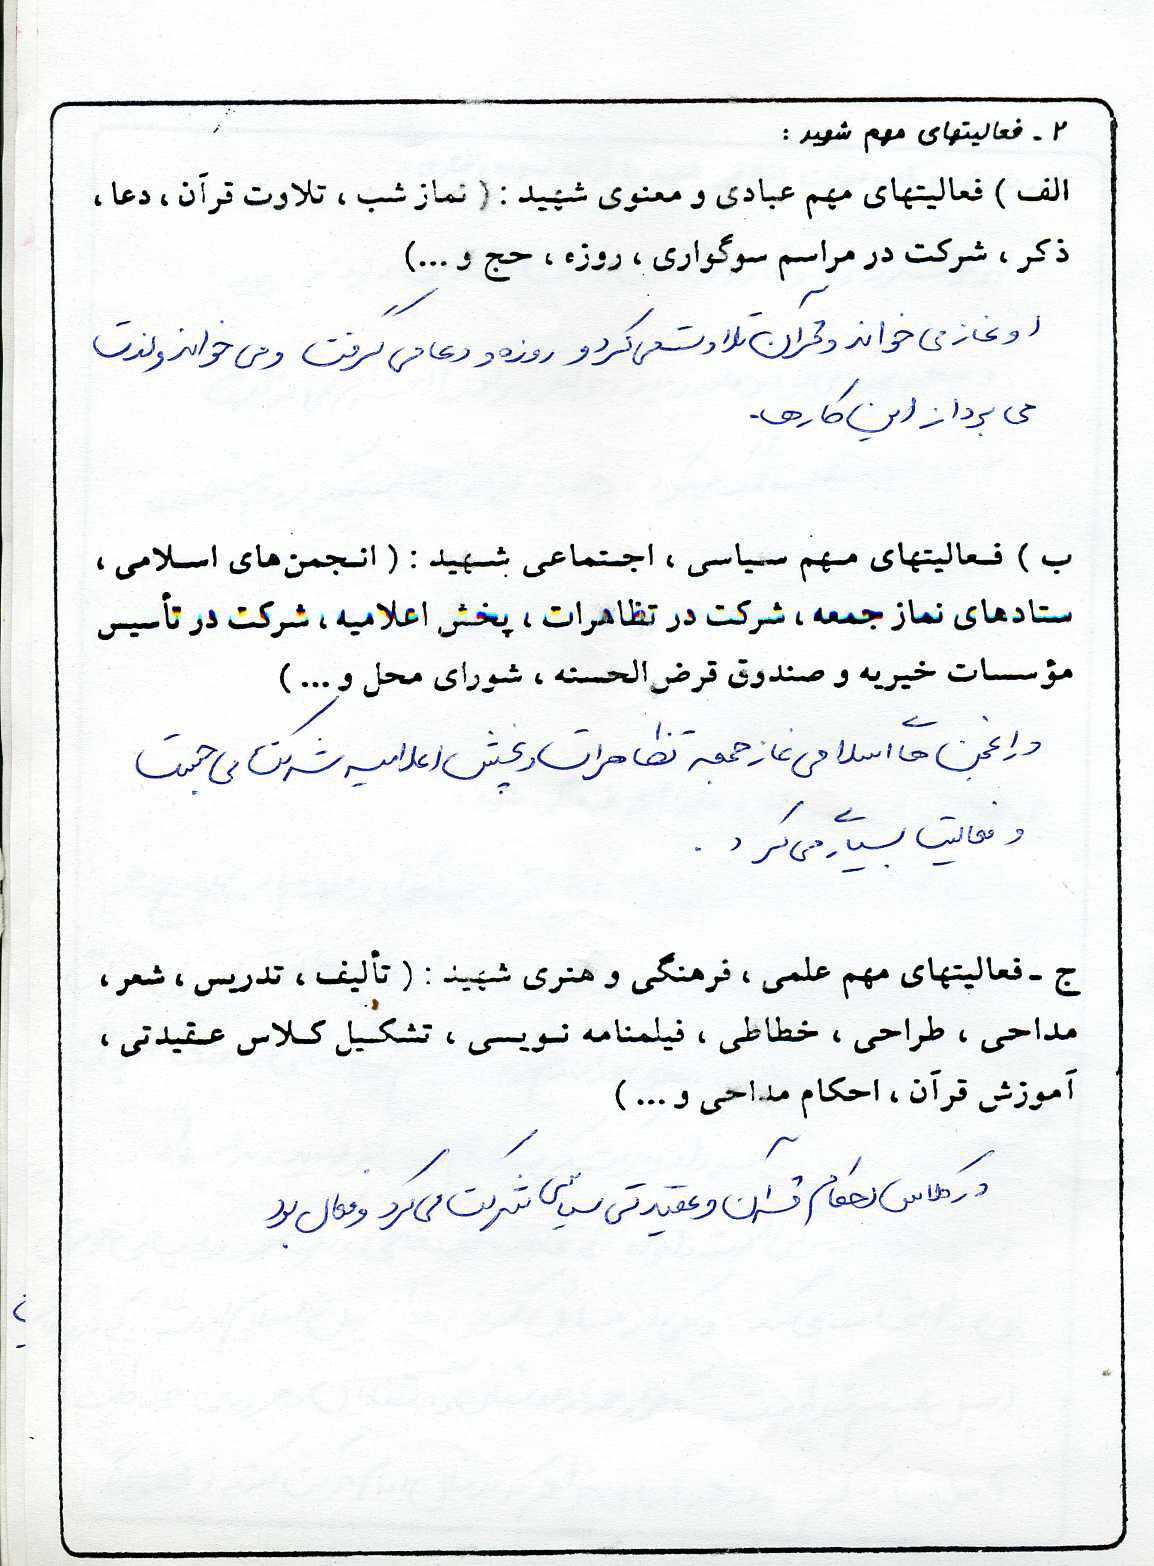 ۲ ـ فعالیتهای مهم شهید :
الف ) فعالیتهای مهم عبادی و معنوی شهید : ( نماز شب ، تلاوت قرآن ، دعا ،
ذکر ، شرکت در مراسم سوگواری ، روزه ، حج و ...)
او نماز می خواند و قرآن تلاوت می کرد و روزه و دعا می گرفت و می خواند و لذت
می برد از این کارها.
ب ) فعالیتهای مهم سیاسی ، اجتماعی شهید : ( انجمن‌های اسلامی ،
ستادهای نماز جمعه ، شرکت در تظاهرات ، پخش اعلامیه ، شرکت در تأسیس
مؤسسات خیریه و صندوق قرض‌الحسنه ، شورای محل و ... )
در انجمن های اسلامی نماز جمعه تظاهرات و پخش اعلامیه شرکت می جست
و فعالیت بسیاری می کرد .
ج ـ فعالیتهای مهم علمی ، فرهنگی و هنری شهید : ( تألیف ، تدریس ، شعر ،
مداحی ، طراحی ، خطاطی ، فیلمنامه نویسی ، تشکیل کلاس عقیدتی ،
آموزش قرآن ، احکام مداحی و ... )
در کلاس احکام قرآن و عقیدتی سیاسی شرکت می کرد و فعال بود